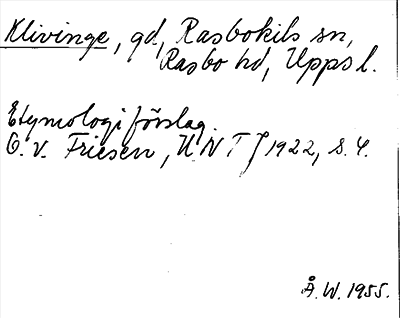 Klivinge, gd, Rasbokils sn,
Rasbo hd, Upps l.
Etymologiförslag.
O. v. Friesen, UNT J 1922, s. 4.
Å. W. 1955.